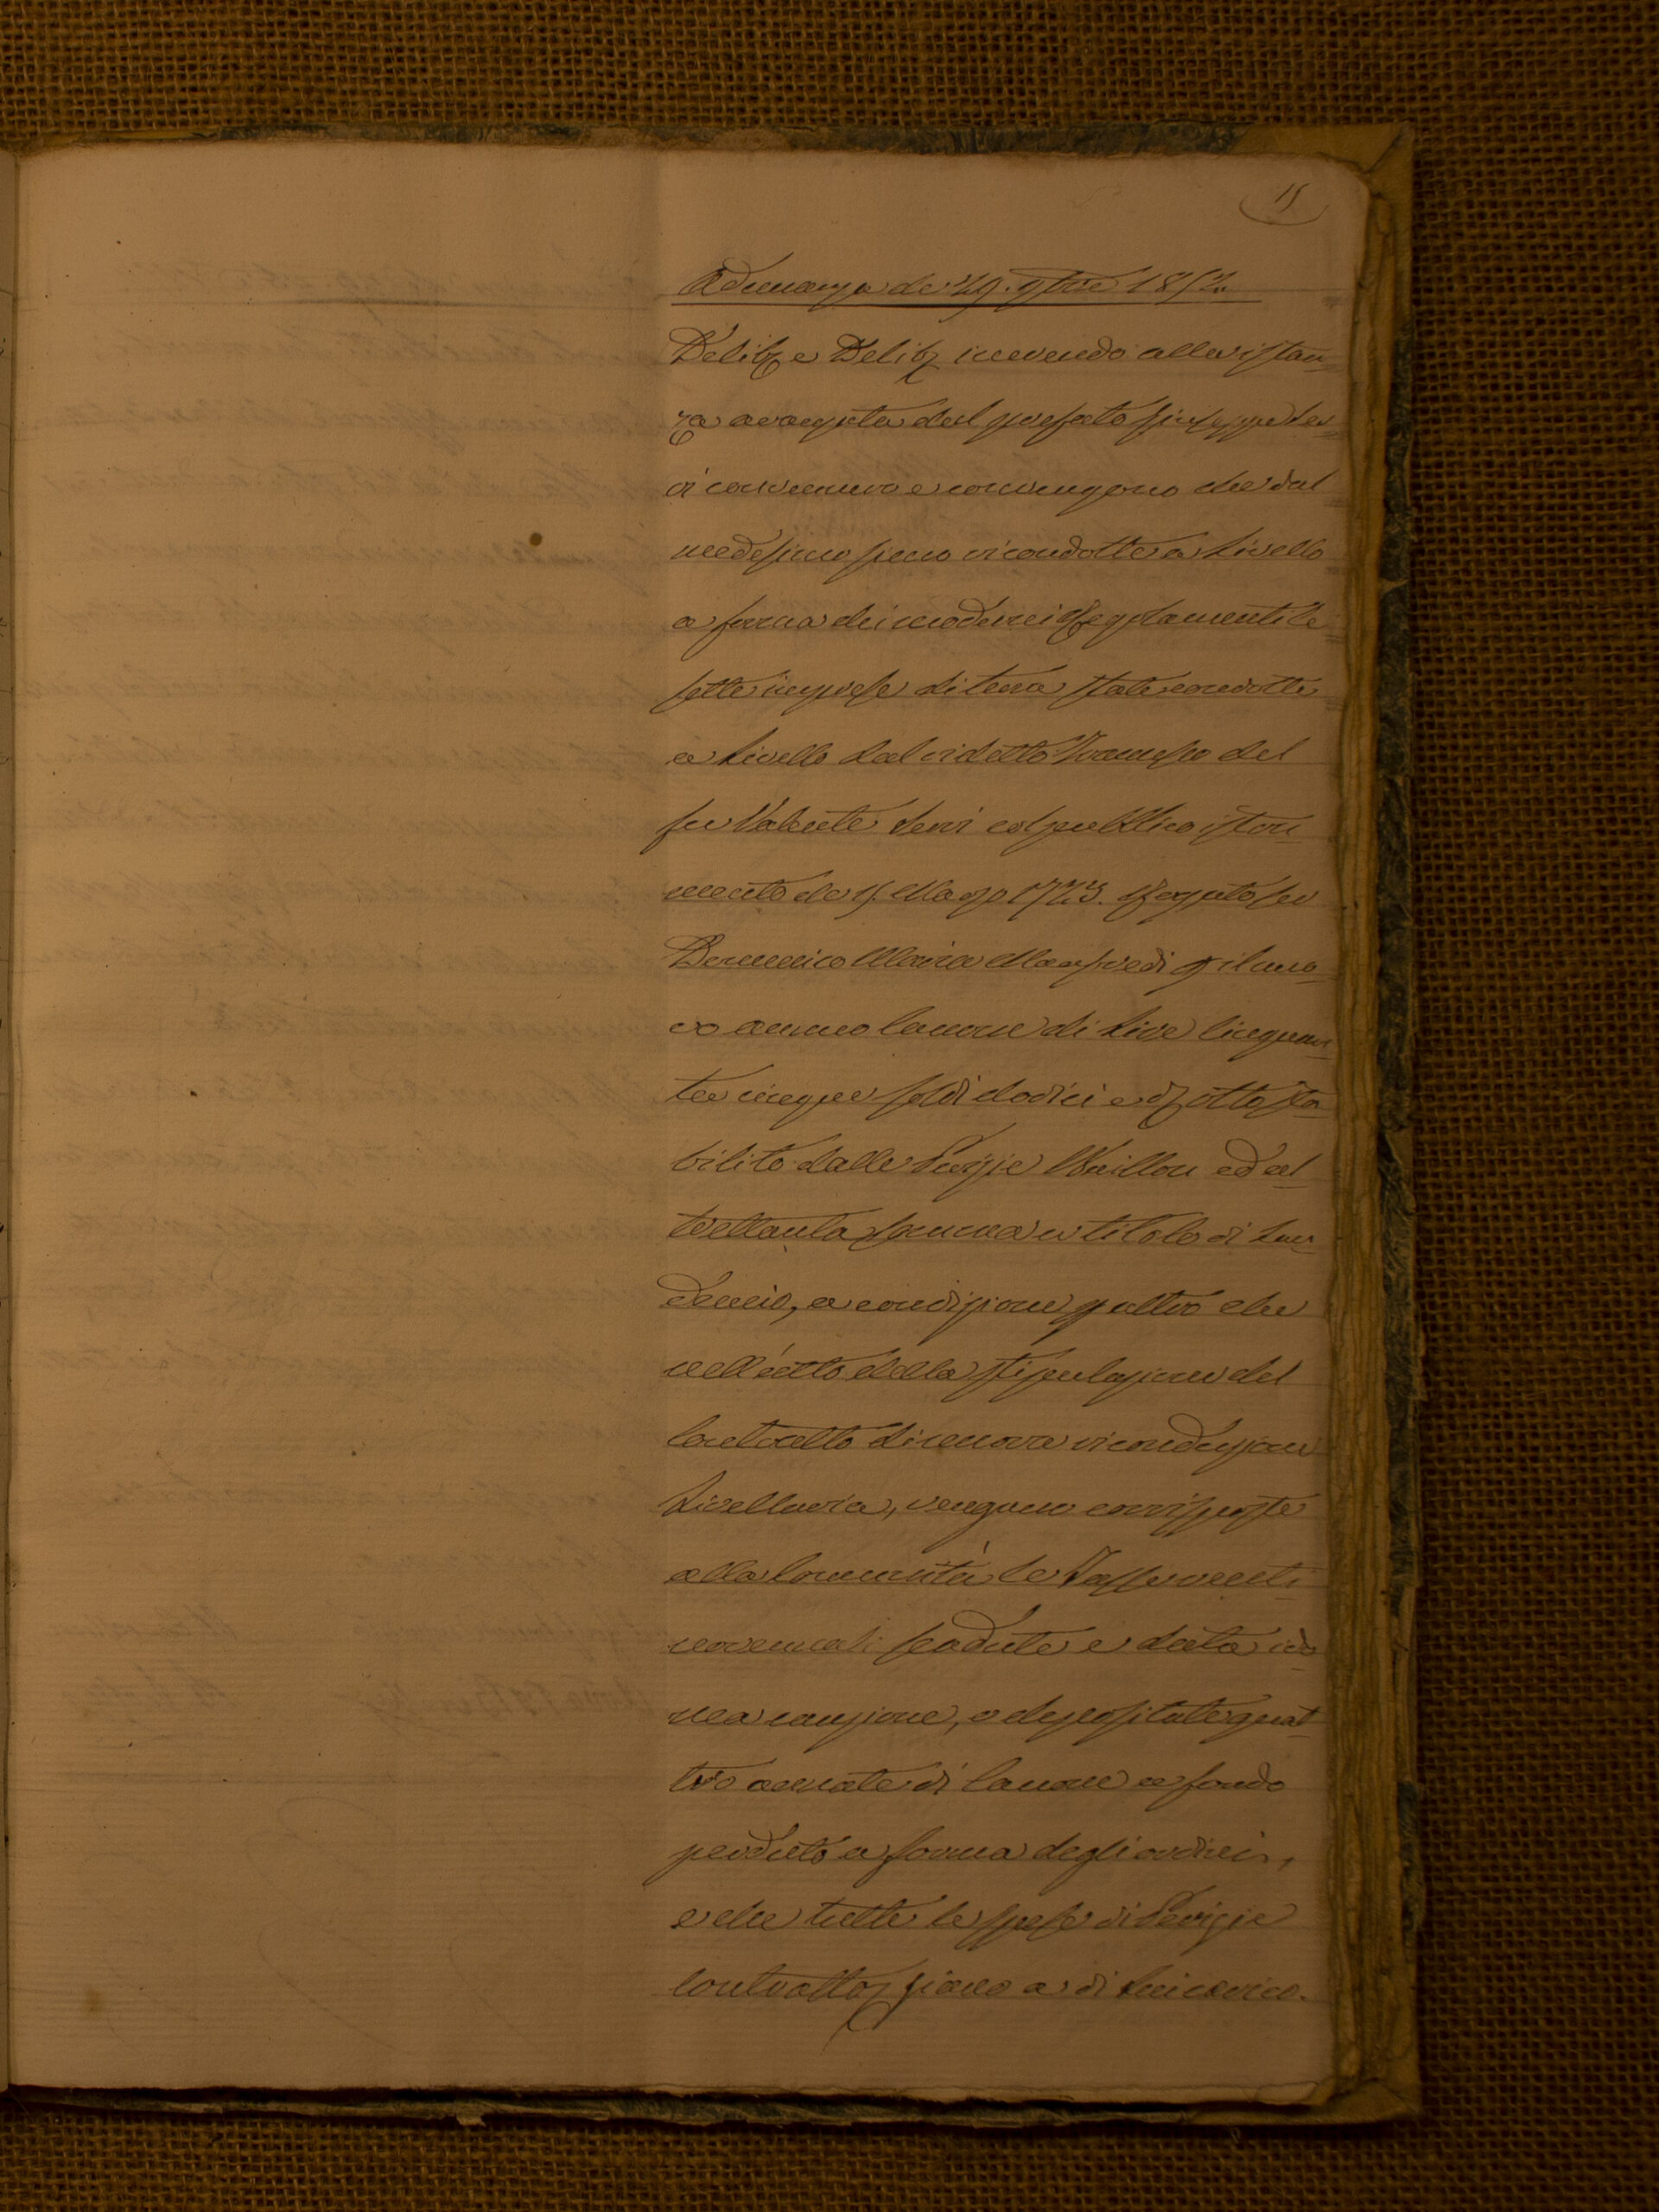 15
Adunanza de' 29. 9bre 1852.
Delib. e Delib. inerendo alla istan=
za avanzata dal prefato Giuseppe
ri convennero e convengono che dal
medesimo siano ricondotte a Livello
a forma dei moderni Regolamenti le
sette imprese di terra state condotte
a Livello dal ridetto Tommaso del
fu Valente col pubblico istru=
mento de 15. Marzo 1773. Rogato Ser
Domenico Maria Manfredi p il nuo=
vo annuo Canone di Lire Cinquan=
ta cinque soldi dodici e d. otto sta=
bilito dalle Perizie ed al=
trettanta somma a titolo di Lau=
demio, a condizione p altro che
nell'atto della stipulazione del
Contratto di nuova riconduzione
Livellaria, vengano corrisposte
alla Comunità le Tasse venti=
novennali scadute e data ido=
nea cauzione, o depositate quat=
tro annate di Canone a fondo
perduto a forma degli ordini,
e che tutte le spese di Perizie
Contratto siano a di Lui carico.